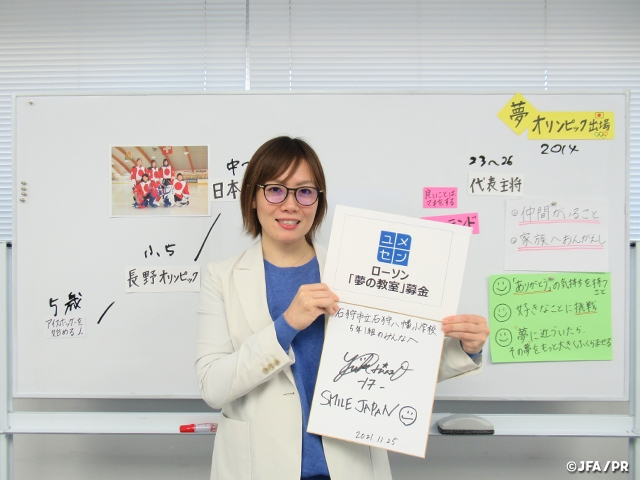 夢
オリンピック出場
2014
23〜26
代表主将
中
日本
良いことは
マネをする
ンド
◎仲間がいること
◎家族へおんがえし
小5
長野オリンピック
5歳
アイスホッケーを
始める
「ありがとう」の気持ちを持つ
こと
好きなことに挑戦
夢に近づいたら、
その夢をもっと大きくふくらませる
ユメ
セン
ローソン
「夢の教室」募金
石狩市立石狩八幡小学校
5年1組のみんなへ
-17-
SMILE JAPAN
2021.11.25
©JFA/PR